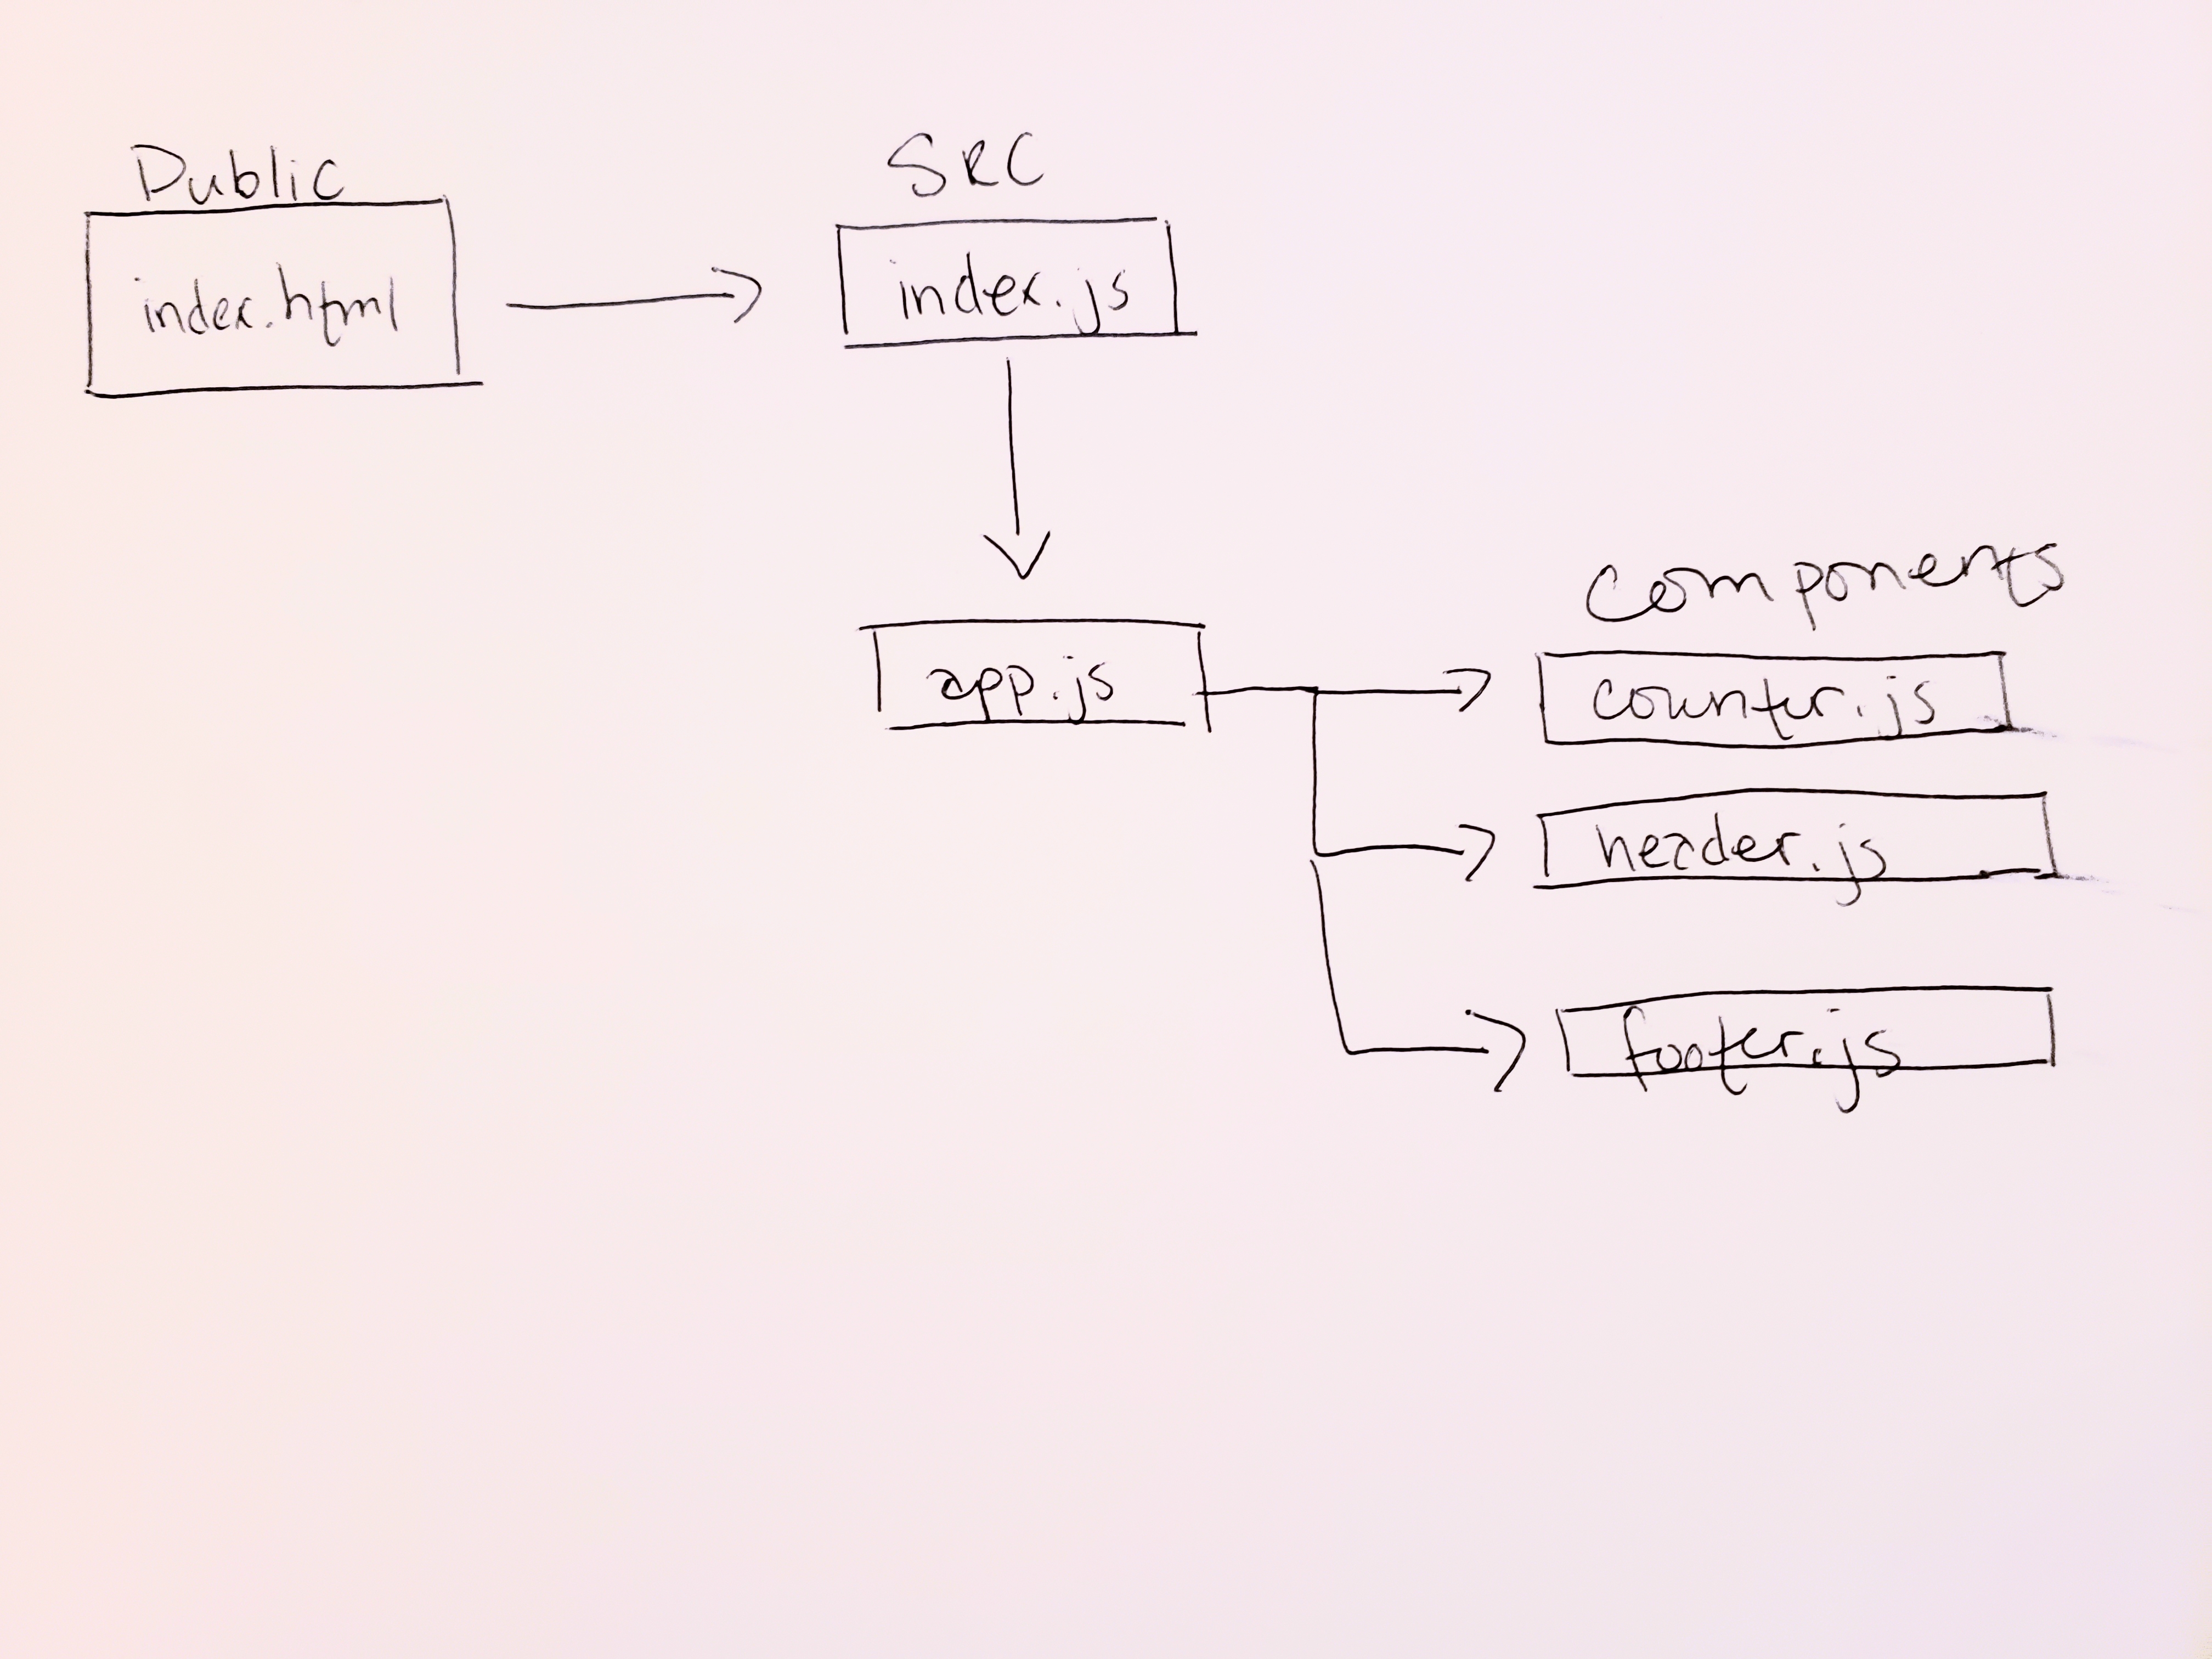 Public
SRC
index.html
index.js
app.js
Components
counter.js
header.js
footer.js